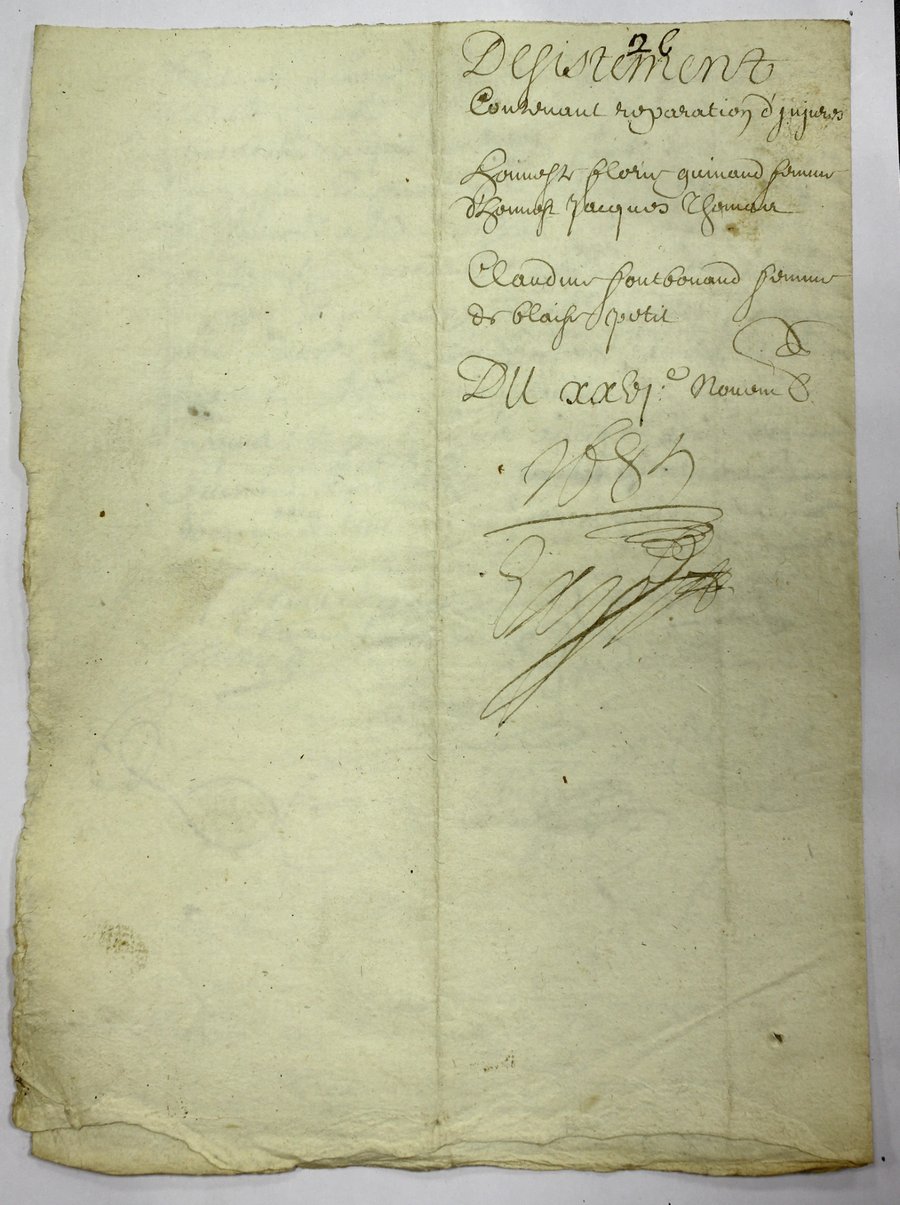 Desistement
Contenant reparation d'jnjures
honneste florie guinand femme
d'honnest Jacques Thomas
Claudine fontbonand femme
de blaise petit
DU xxvj.e Novem